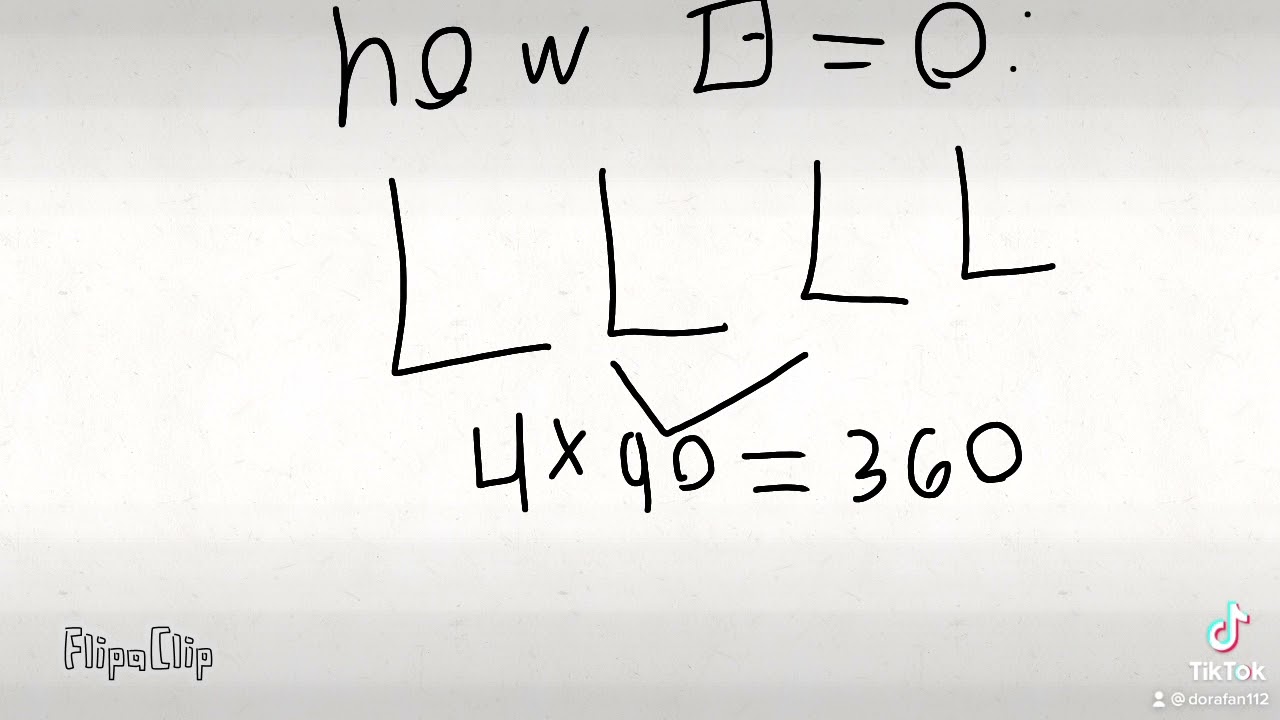 how □ = O:
4 × 90 = 360
FlipaClip
TikTok
@dorafan112